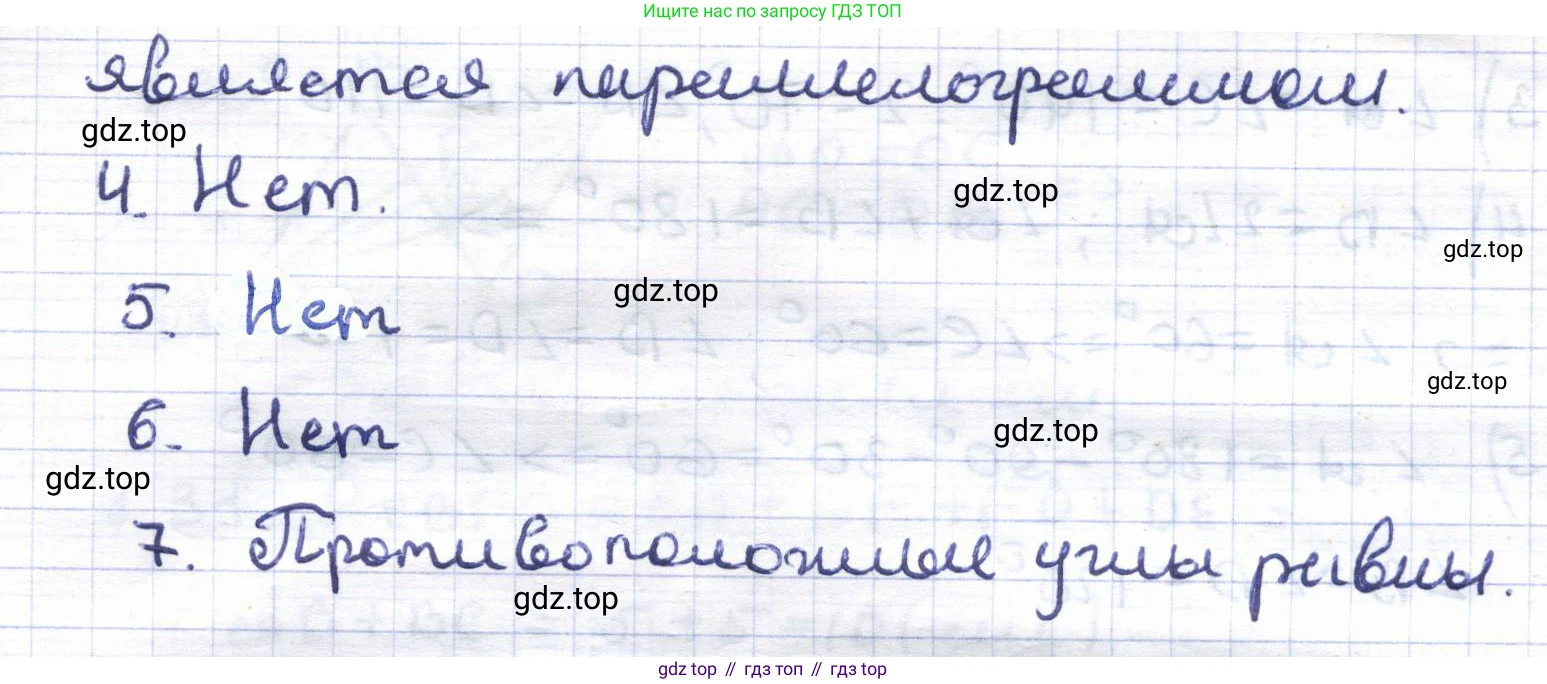 Ищите нас по запросу ГДЗ ТОП
является параллелограммом.
gdz.top
4. Нет.
gdz.top
gdz.top
5. Нет
gdz.top
gdz.top
6. Нет
gdz.top
gdz.top
7. Противоположные углы равны.
gdz.top
gdz top // гдз топ // гдз top